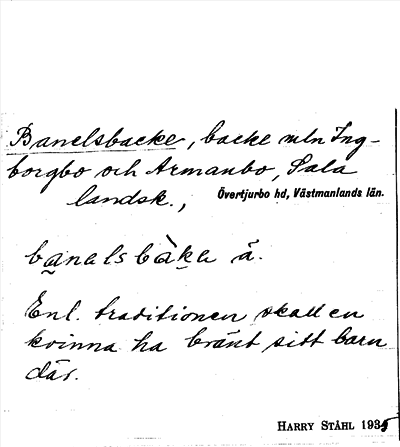 Banelsbacke, backe mln Ing-
borgbo och Armanbo, Sala
landsk., Övertjurbo hd, Västmanlands län.
banalsbàkɐ ä.
Enl. traditionen skall en
kvinna ha bränt sitt barn
där.
HARRY STÅHL 1935